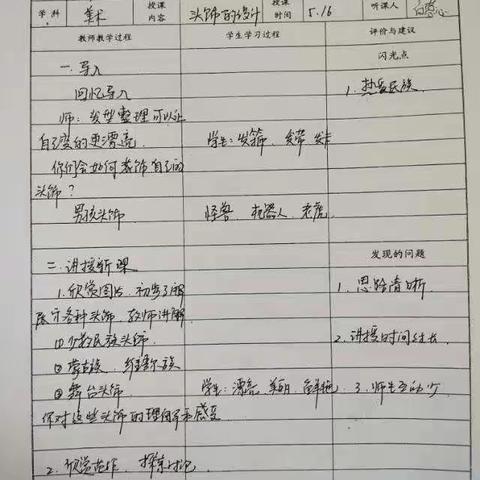 学科 美术 授课内容 头饰的设计 授课时间 5.16 听课人
教师教学过程 学生学习过程 评价与建议
闪光点
一.导入
回忆导入
1.热爱民族
师:发型整理可以让
自己变的更漂亮. 学生:发箍、发带、发卡
你们会如何装饰自己的
头饰?
男孩头饰 怪兽 机器人、老虎
发现的问题
二.讲授新课
1.欣赏图片,初步了解 1.思路清晰.
各种头饰,教师讲解
①少数民族头饰. 2.讲授时间过长.
②蒙古族、维吾尔族
③舞台头饰 学生:漂亮、美丽、鲜艳. 3.师生互动少
你对这些头饰的理解和感受
2.欣赏范作、探索讨论